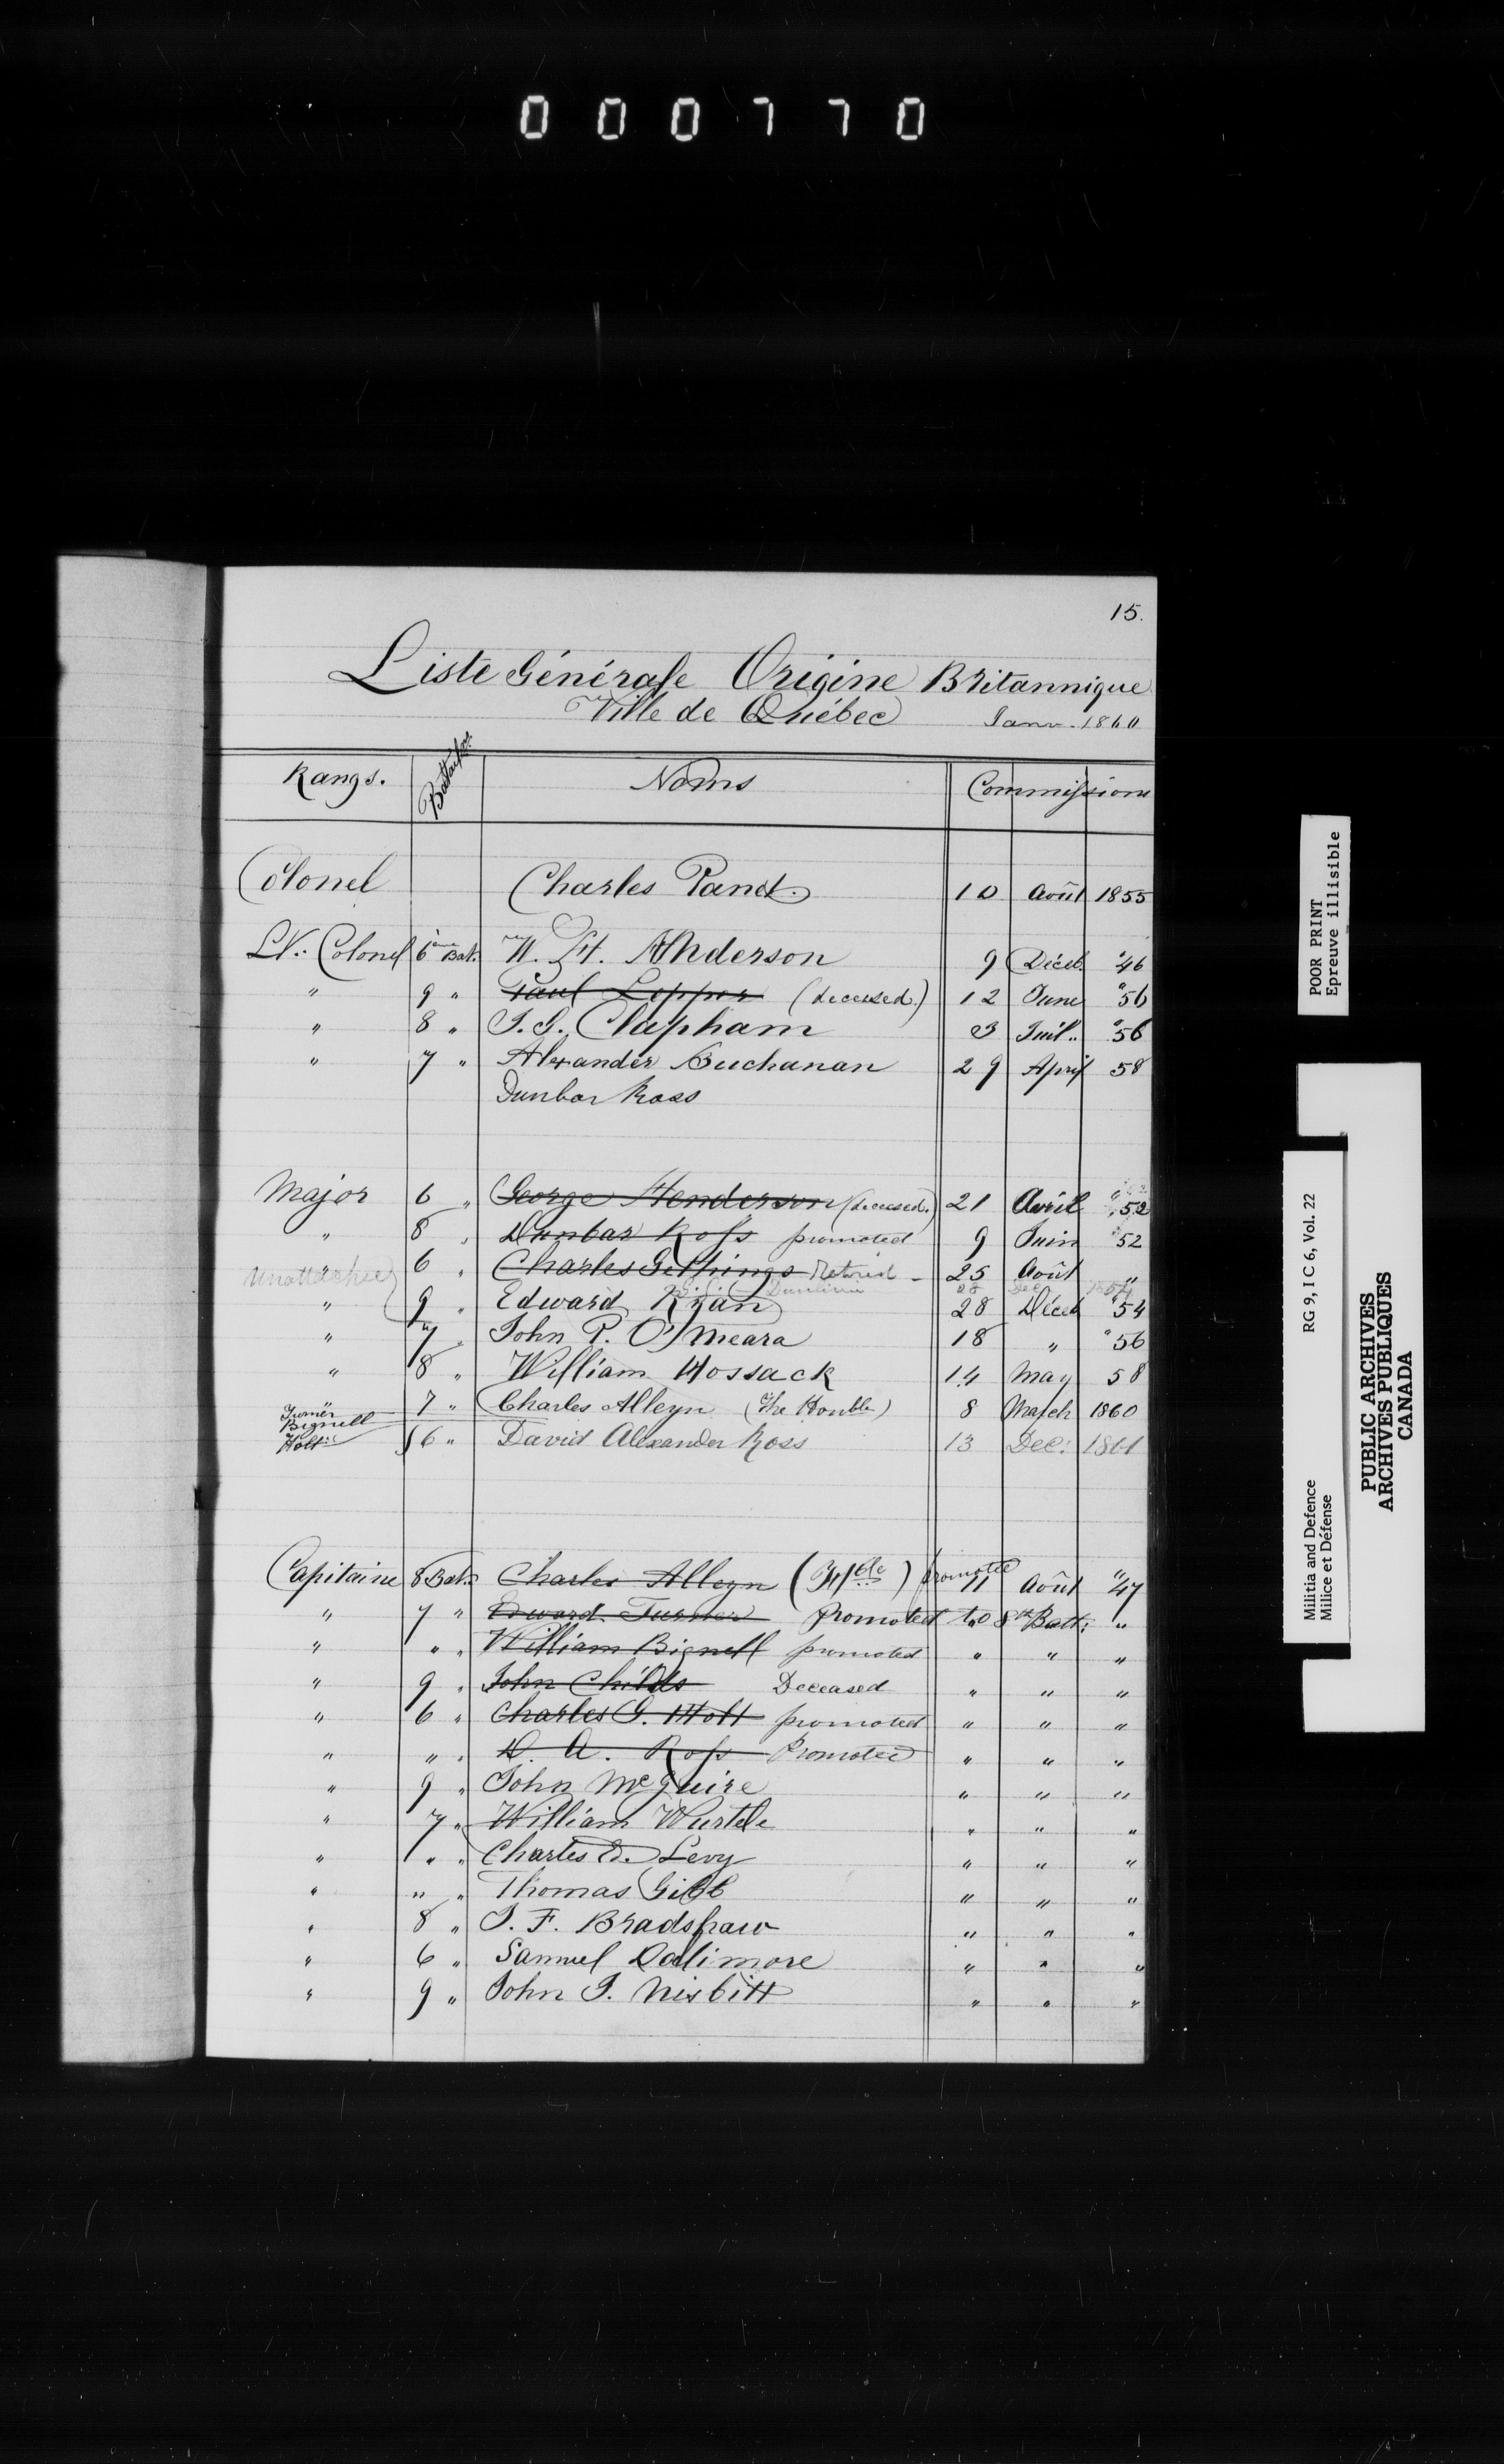 000770
15.
Liste Générale Origine Britannique
Ville de Québec Janv. 1860
Rangs. Noms Commissions
Colonel Charles Panet 10 Août 1855
Lt. Colonel 6ème Bat. W. H. Anderson 9 Déceb. "46
" 9 " Paul Lepper (deceased.) 12 June "56
" 8 " J. G. Clapham 3 Juil.. "56
" 7 " Alexander Buchanan 29 April 58
Dunbar Ross
Major 6 " George Henderson (deceased.) 21 Avril "52
" 8 " Dunbar Ross promoted 9 Juin "52
6 " Charles Gethings Retired - 25 Août "
Unattached
28 Dec 1854
" 9 " Edward Ryan 28 Déceb "54
" 7 " John P. O'Meara 18 " "56
" 8 " William Hossack 14 May 58
" 7 " Charles Alleyn (The Honble) 8 March 1860
Turner
Bignell
Holt
6 " David Alexander Ross 13 Dec: 1861
Capitaine 8 Bat. Charles Alleyn (Hble) promoted 11 Août "47
" 7 " Edward Turner Promoted to 8th Batt: "
" " " William Bignell promoted " " "
" 9 " John Childs Deceased " " "
" 6 " Charles G. Holt promoted " " "
" " " D. A. Ross Promoted " " "
" 9 " John McGuire " " "
" 7 " William Wurtele " " "
" " " Charles E. Levy " " "
" " " Thomas Gibb " " "
" 8 " J. F. Bradshaw " " "
" 6 " Samuel Dalimore " " "
" 9 " John J. Nisbitt " " "
POOR PRINT
Epreuve illisible
Militia and Defence RG 9, I C 6, Vol. 22
Milice et Défense
PUBLIC ARCHIVES
ARCHIVES PUBLIQUES
CANADA